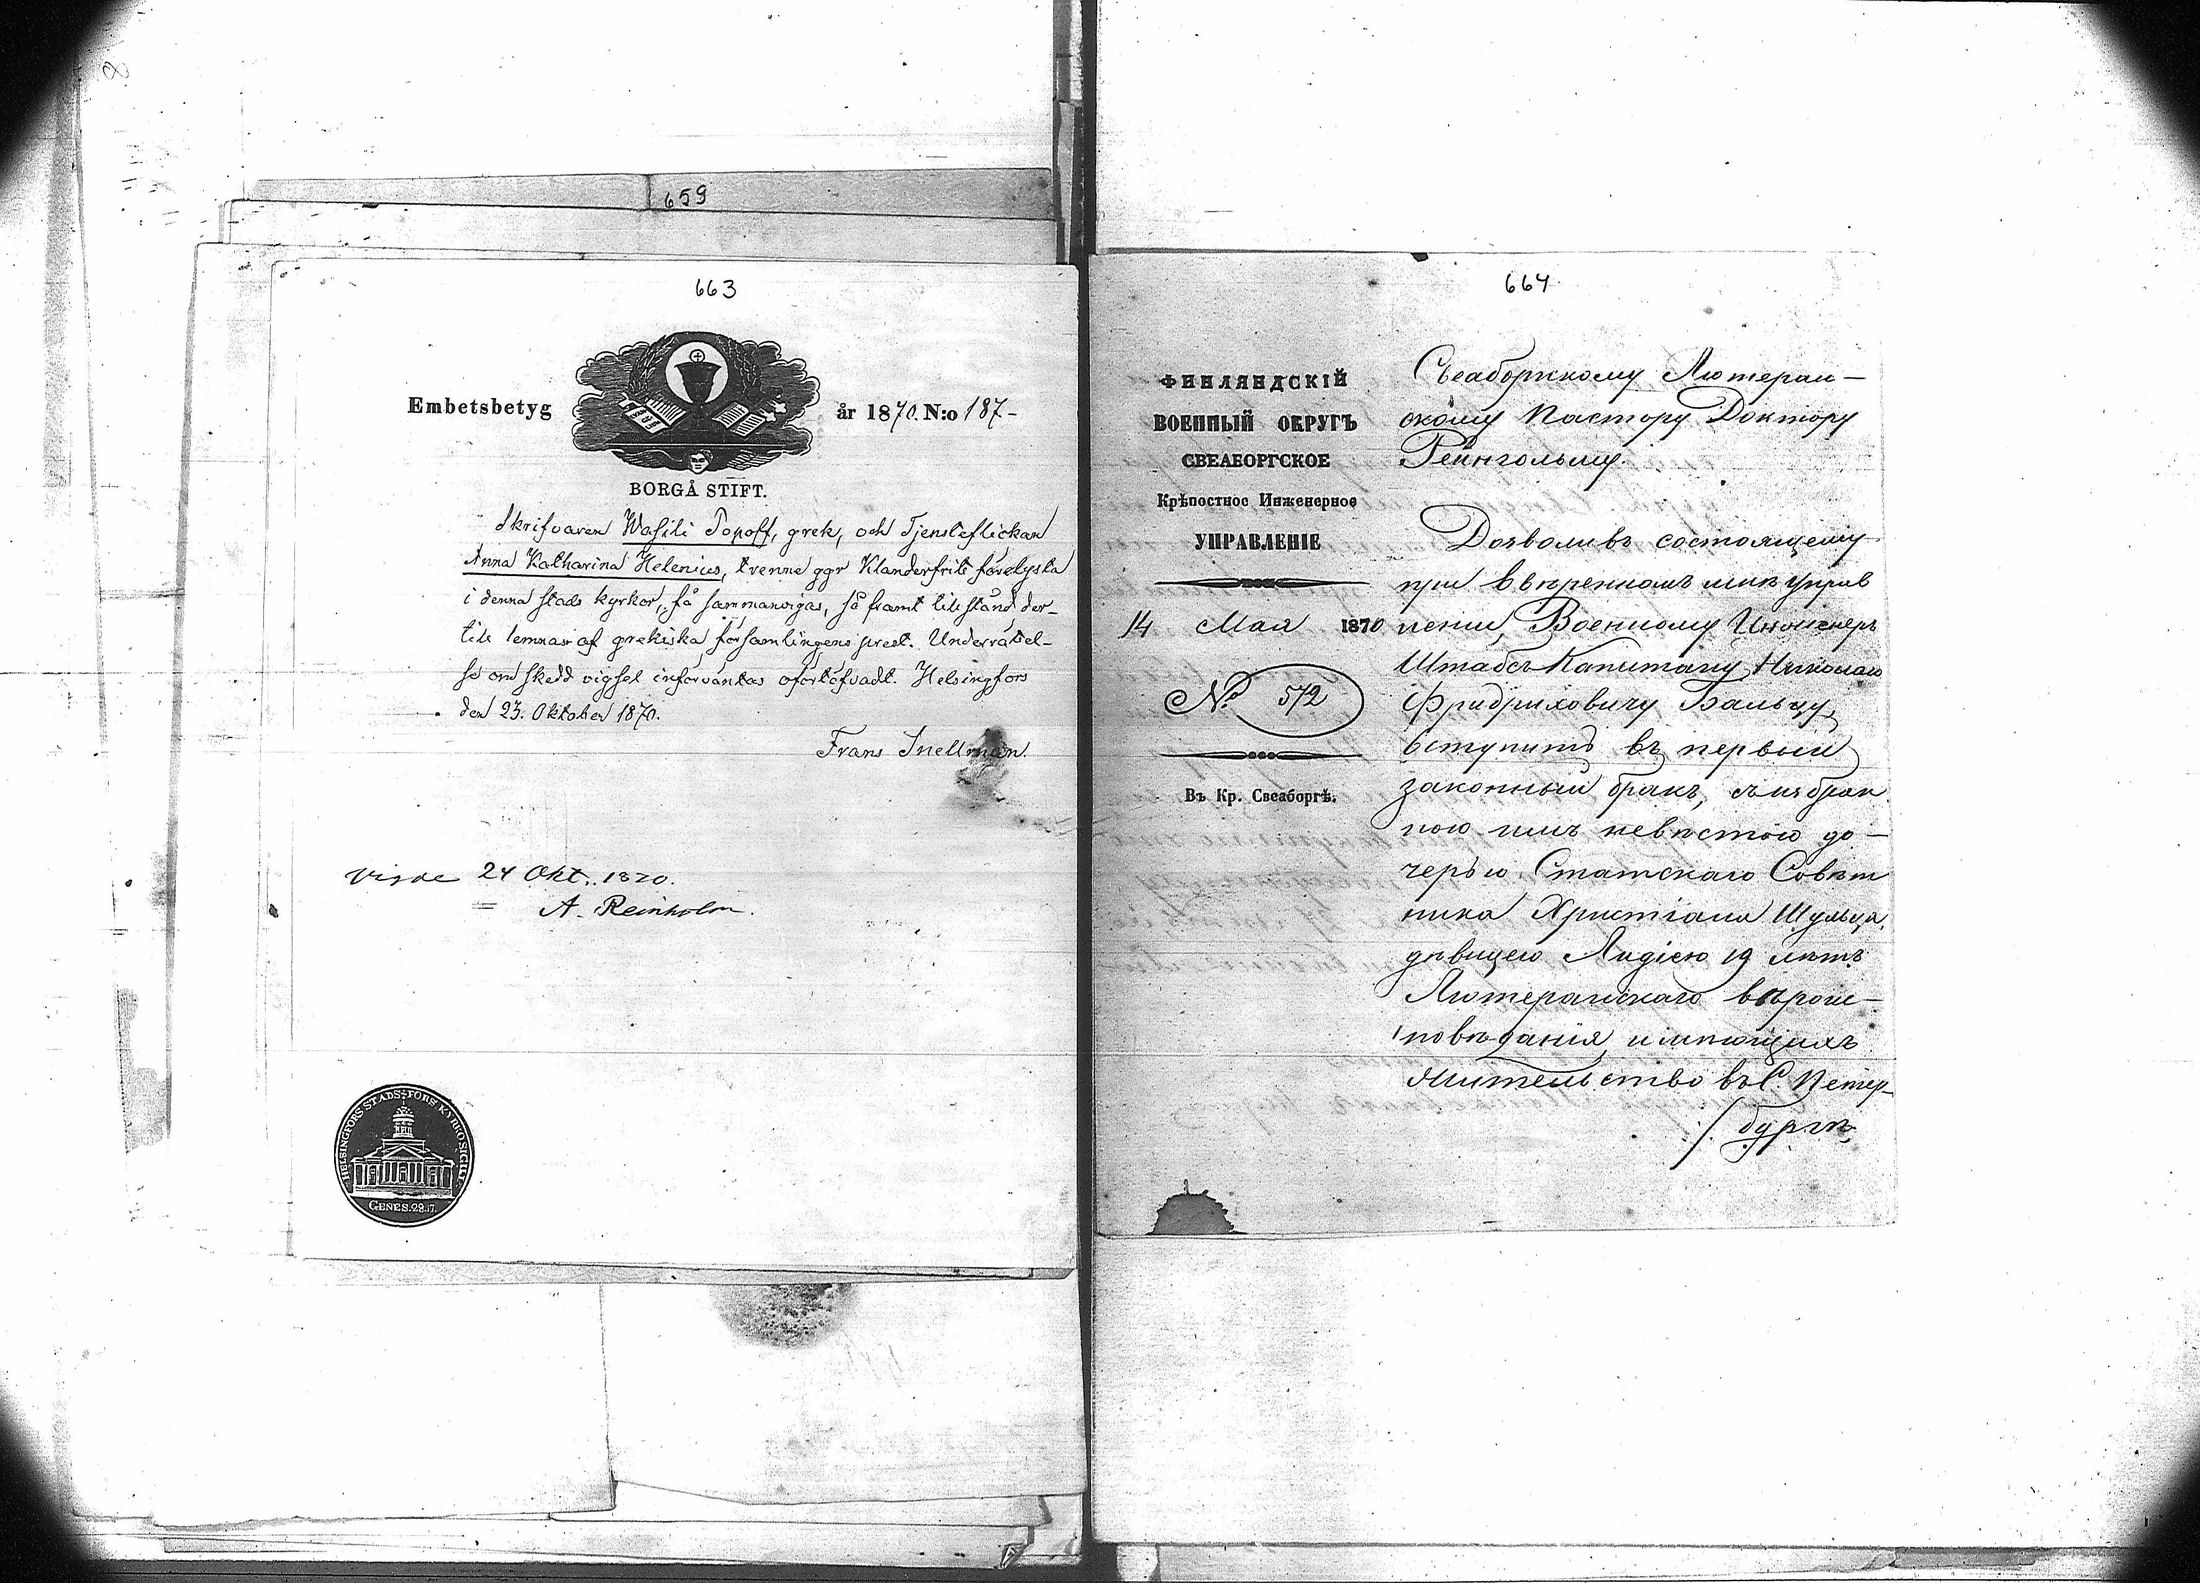 659
663
Embetsbetyg år 1870. N:o 187-
BORGÅ STIFT.
Skrifvaren Wasili Popoff, grek, och Tjensteflickan
Anna Katharina Helenius, tvenne ggr klanderfritt förelysta
i denna stads kyrkor, få sammanvigas, så framt tillstånd der-
till lemnas af grekiska församlingens prest. Underrättel-
se om skedd vigsel införväntas ofördtöfvadt. Helsingfors
den 23. Oktober 1870.
Frans Snellman.
Vigde 24 Okt. 1870.
A. Reinholm.
HELSINGFORS STADS-FÖRS. KYRKO SIGILL.
GENES. 28. 17.
664
ФИНЛЯНДСКІЙ
ВОЕННЫЙ ОКРУГЪ
СВЕАБОРГСКОЕ
Крѣпостное Инженерное
УПРАВЛЕНІЕ
14 Мая 1870
№ 572
Въ Кр. Свеаборгѣ.
Свеаборгскому Лютеран-
скому Пастору Доктору
Рейнгольму.
Дозволивъ состоящему
при ввѣренномъ мнѣ управ
леніи, Военному Инженеръ
Штабсъ Капитану Николаю
Фридриховичу Бальцу,
вступить въ первый
законный бракъ, съ избран
ною имъ невѣстою до-
черью Статскаго Совѣт
ника Христіана Шульца,
дѣвицею Лидіею 19 лѣтъ
Лютеранскаго вѣроис-
повѣданія, имѣющихъ
жительство въ С. Петер-
бургѣ,